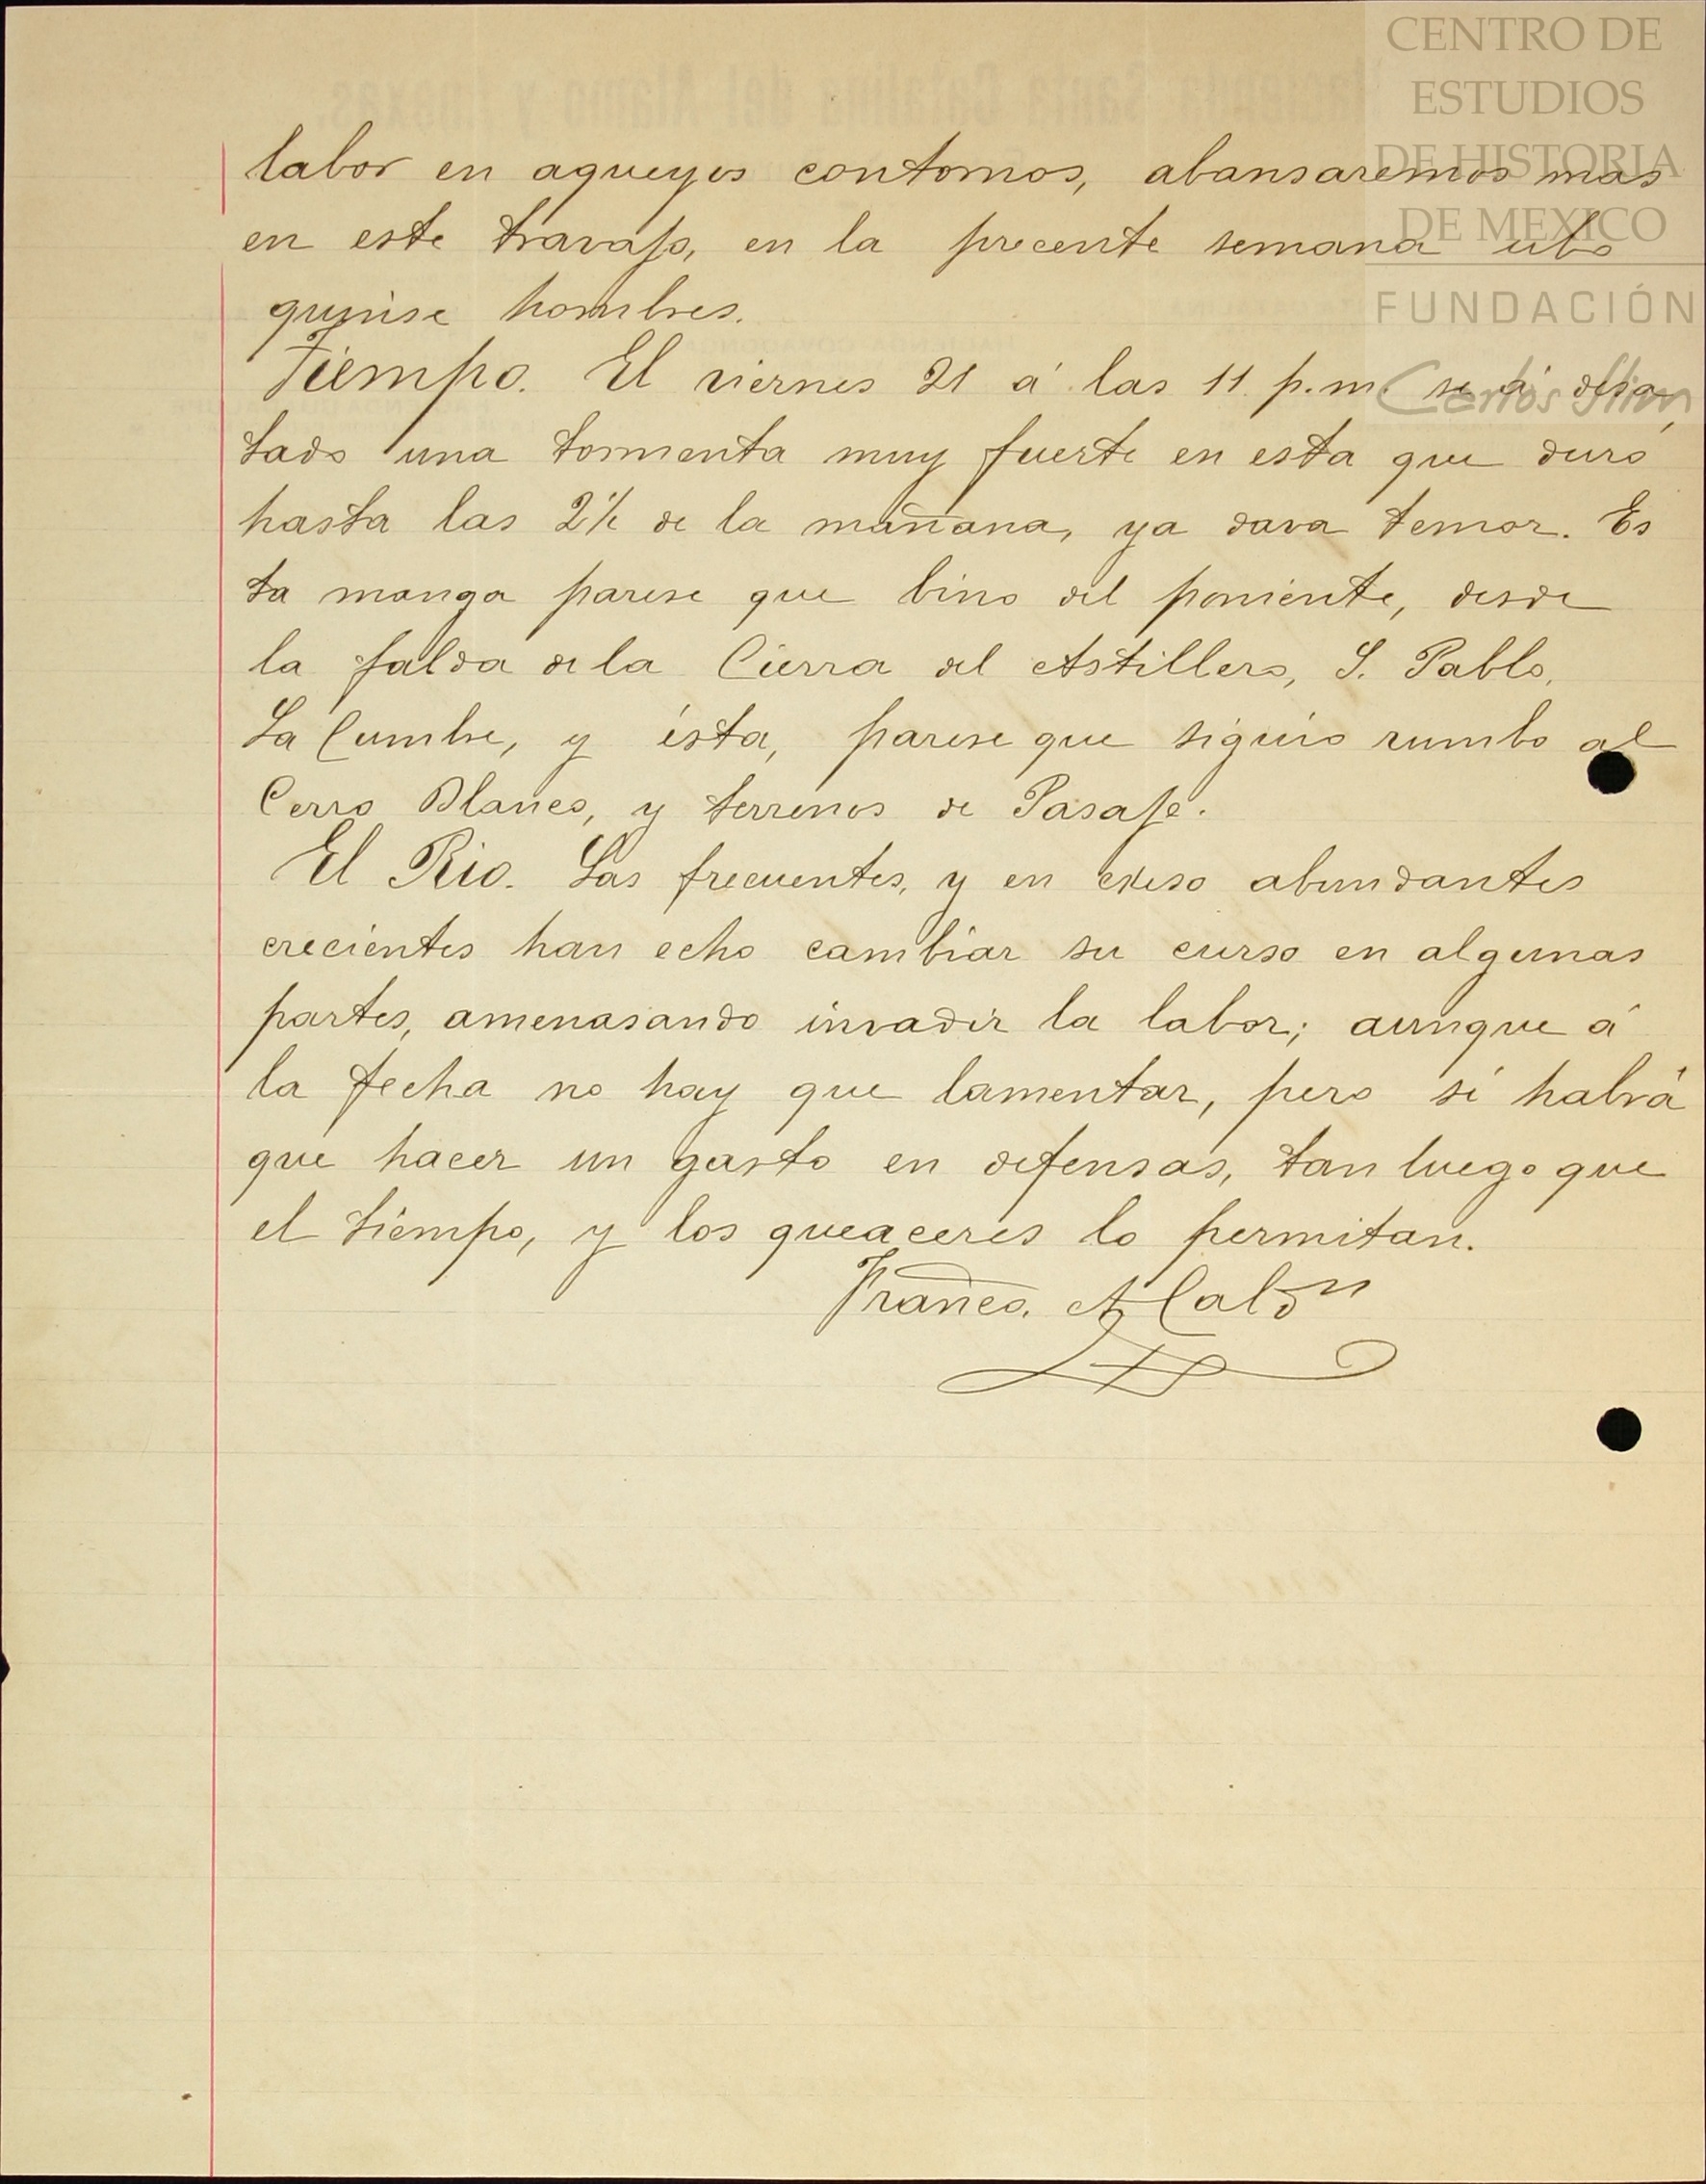 CENTRO DE
ESTUDIOS
DE HISTORIA
DE MEXICO
FUNDACIÓN
Carlos Slim
labor en aqueyos contornos, abansaremos mas
en este travajo, en la precente semana ubo
quinse hombres.
Tiempo. El viernes 21 á las 11 p.m. se á desa
tado una tormenta muy fuerte en esta que duró
hasta las 2½ de la mañana, ya dava temor. Es
ta manga parese que bino del poniente, desde
la falda de la Cierra del Astillero, S. Pablo,
La Cumbre, y ésta, parese que siguio rumbo al
Cerro Blanco, y terrenos de Pasaje.
El Rio. Las frecuentes, y en exeso abundantes
crecientes han echo cambiar su curso en algunas
partes, amenasando invadir la labor; aunque á
la fecha no hay que lamentar, pero si habrá
que hacer un gasto en defensas, tan luego que
el tiempo, y los queaceres lo permitan.
Franco. A Caldn